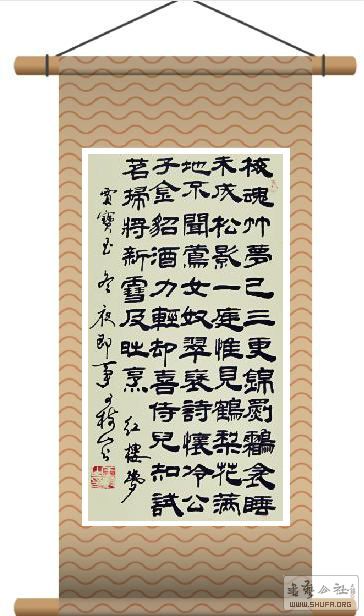 梅魂竹夢已三更錦罽鸘衾睡
未成松影一庭惟見鶴梨花滿
地不聞鶯女奴翠袖詩懷冷公
子金貂酒力輕却喜侍兒知試
茗掃將新雪及時烹 紅樓夢
賈寶玉冬夜即事
书艺公社
WWW.SHUFA.ORG